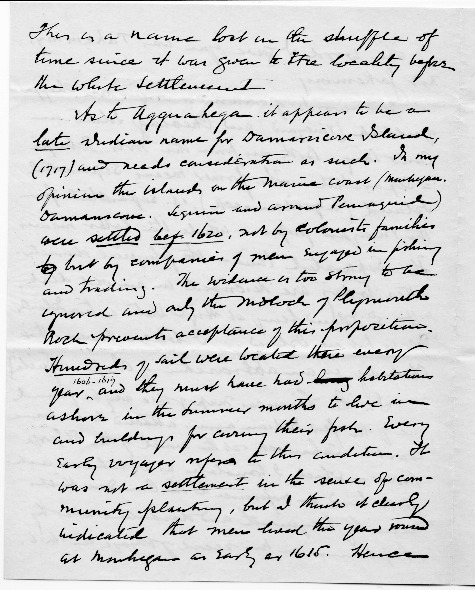 This is a name lost in the shuffle of
time since it was given to the locality before
the white settlement
As to Aqquahega it appears to be a
late Indian name for Damariscove Island,
(1717) and needs consideration as such. In my
opinion the islands on the Maine coast (Monhegan.
Damariscove. Seguin and around Pemaquid)
were settled bef. 1620, not by colonists families
but by companies of men engaged in fishing
and trading. The evidence is too strong to be
ignored and only the Moloch of Plymouth
Rock prevents acceptance of this proposition.
Hundreds of sail were located there every
1606-1619
year, and they must have had habitations
ashore in the summer months to live in
and buildings for curing their fish. Every
Early voyager refers to this condition. It
was not a settlement in the sense of com-
munity planting, but I think it clearly
indicated that men lived the year round
at Monhegan as Early as 1615. Hence